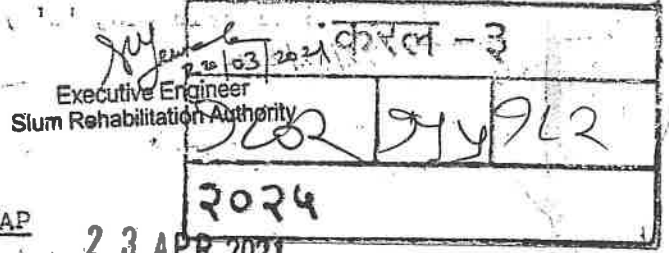 करल - ३
20/03/2021
Executive Engineer
Slum Rehabilitation Authority
१८२
२०२५
AP
23 APR 2021